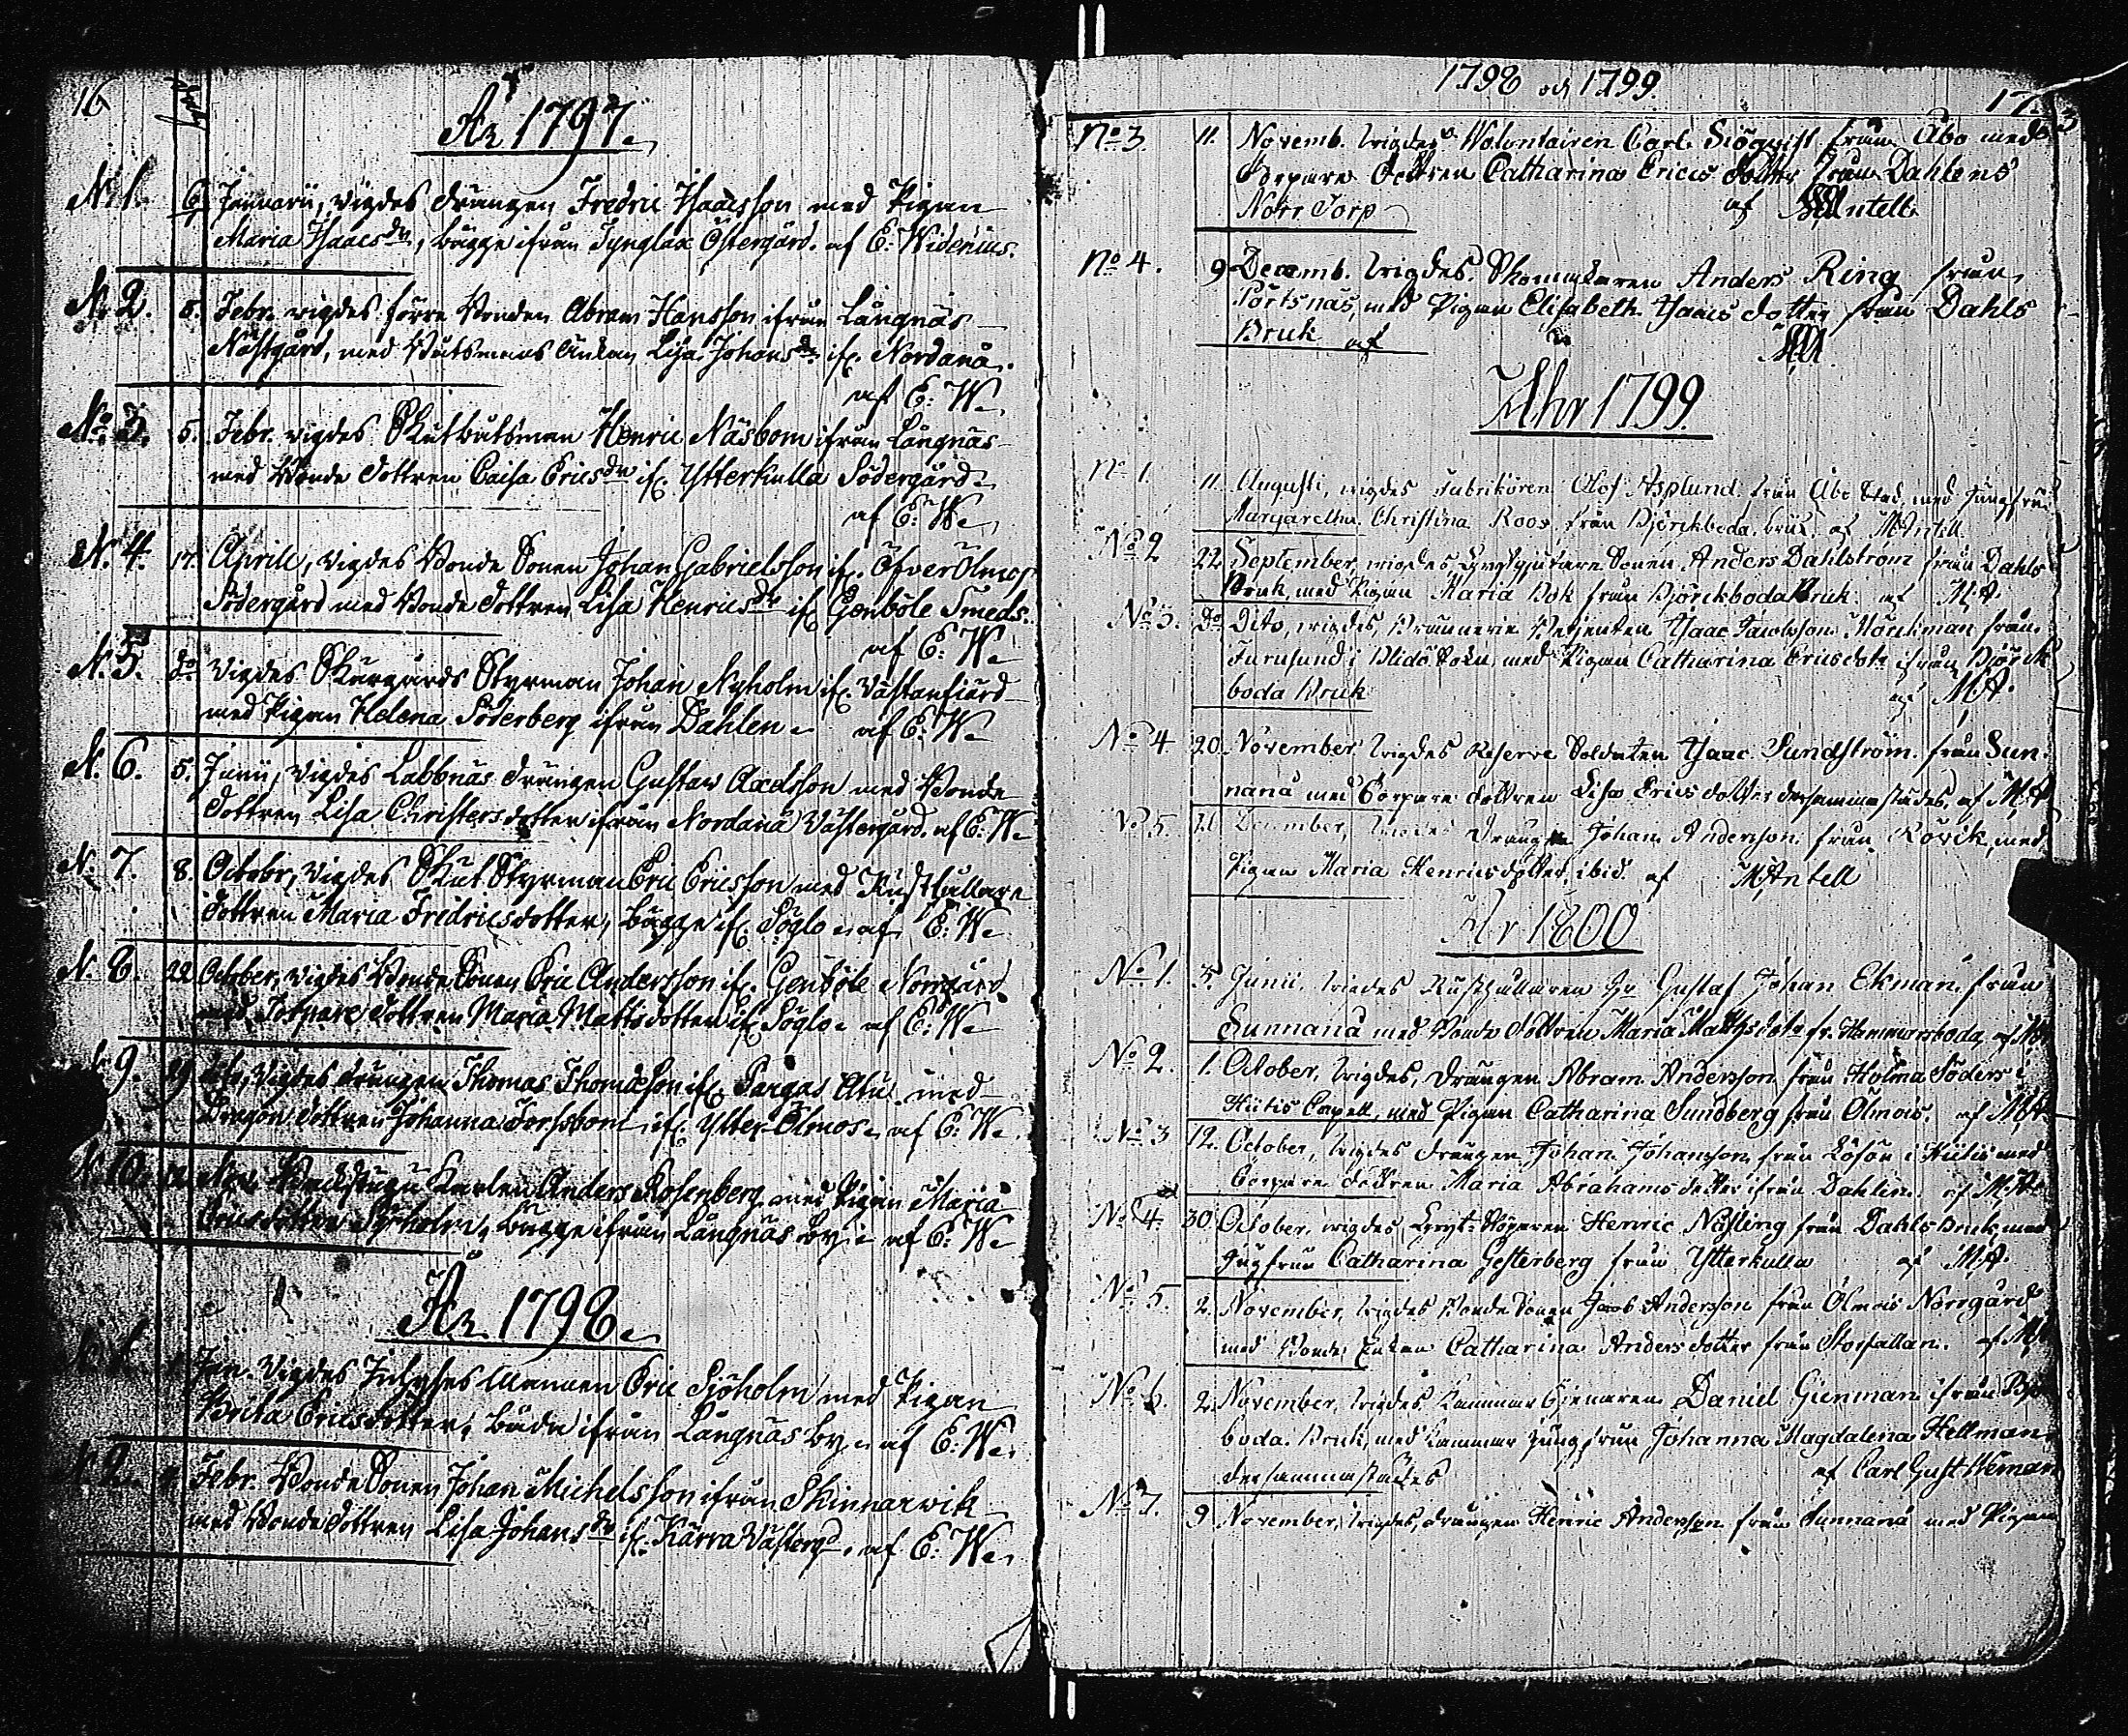 16
År 1797.
N. 1. 6. Januarii, vigdes drängen Fredric Isaacsson med Pigan
Maria Isaacsdr, bägge ifrån Tynglax Östergård. af E: Widenius.
N. 2. 5. Febr. vigdes förre Bonden Abram Hansson ifrån Långnäs
Nästgård, med Båtsmans Änkan Lisa Johansdr if. Nordanå.
af E: W.
No. 3. 5. Febr. vigdes Skutbåtsman Henric Näsbom ifrån Långnäs
med Bonde dottren Caisa Ericsdr if. Ytterkulla Södergård
af E: W.
N. 4. 17. Aprill, vigdes Bonde Sonen Johan Gabrielsson if. Öfver Ölmos
Södergård med Bonde dottren Lisa Henricsdr if. Genböle Smeds.
af E: W.
N. 5. do vigdes Skärgårds Styrman Johan Nyholm if. Västanfiärd
med Pigan Helena Söderberg ifrån Dahlen. af E: W.
N. 6. 5. Junii, vigdes Labbnäs drängen Gustav Axelsson med Bonde
dottren Lisa Christersdotter ifrån Nordanå Västergård. af E: W.
N. 7. 8. Octobr, vigdes Skut Styrman Eric Ericsson med Rusthållare
dottren Maria Fredricsdotter, bägge if. Söglo. af E: W.
N. 8. 22 October, vigdes Bonde Sonen Eric Andersson if. Genböle Norrgård
med Torpare dottren Maria Mattsdotter if. Söglo. af E: W.
9. 29 dito, vigdes drängen Thomas Thomasson if. Pargas Attu med
Dragon dottren Johanna Forssbom if. Ytter-Ölmos. af E: W.
N. 10. Nov. Karlen Anders Rosenberg med Pigan Maria
Ericsdotter Syrholm, bägge ifrån Långnäs by. af E: W.
År 1798.
N. 1. Jan. vigdes Eric Sjöholm med Pigan
Brita Ericsdotter, båda ifrån Långnäs by. af E: W.
N. 2. Febr. Bonde Sonen Johan Michelsson ifrån Skinnarvik
med Bonde dottren Lisa Johansdr if. Kärra Västergd. af E: W.
1798 och 1799.
17.
No. 3 11. Novemb. wigdes Wolontairen Carl Siöqvist från Åbo med
Torpare dottren Catharina Erics dotter från Dahlens
Norr Torp af MAntell
No. 4. 9 Decemb. wigdes Skomakaren Anders Ring från
Pörtsnäs, med Pigan Elisabeth Isaacs dotter från Dahls
Bruk af MA
Åhr 1799.
No 1. 11. Augusti, wigdes Fabrikören Olof Asplund från Åbo Stad med Jungfru
Margaretha Christina Roos från Björckboda bruk af MAntell
No. 2 22 September, wigdes Anders Dahlström från Dahls
Bruk, med Pigan Maria Bok från Björckboda Bruk af MA
No. 3. Do Dito, wigdes, Isaac Jacobsson Mörckman från
Furusund i Blidö Sokn, med Pigan Catharina Ericsdotr ifrån Björck
boda Bruk af MA.
No. 4 20. November wigdes Reserve Soldaten Isaac Sundström från Sun
nanå med Torpare dottren Lisa Erics dotter dersammastädes, af MA
No. 5. December, wigdes Drängen Johan Andersson från Rövik, med
Pigan Maria Henricsdotter, ibid. af MAntell
År 1800
No. 1. 5. Junii, wigdes Rusthållaren Hr Gustaf Johan Ekman från
Sunnanå med Bonde dottren Maria Matthsdotr fr. Hammarsboda, af MA
No. 2. 1. October, wigdes, Drängen Abram Andersson från Holma Söders i
Hiitis Capell, med Pigan Catharina Sundberg från Ölmos. af MA
No. 3 12. October, wigdes drängen Johan Johansson från Lösön i Hiitis med
Torpare dottren Maria Abrahams dotter ifrån Dahlen. af MA
No. 4. 30. October, wigdes Henric Näsling från Dahls Bruk, med
Jungfrun Catharina Gesterberg från Ytterkulla af MA.
No. 5. 2. November, wigdes Bonde Sonen Jacob Andersson från Ölmos Norrgård
med Bonde Enkan Catharina Anders dotter från Storfallan. af MA
No. 6. 2. November, wigdes Kammar Tjenaren Daniel Gienman ifrån Björ
boda Bruk, med Kammar Jungfrun Johanna Magdalena Hellman
dersammastädes af Carl Gust Weman
No. 7. 9 November, wigdes, drängen Henric Andersson från Sunnanå med Pigan